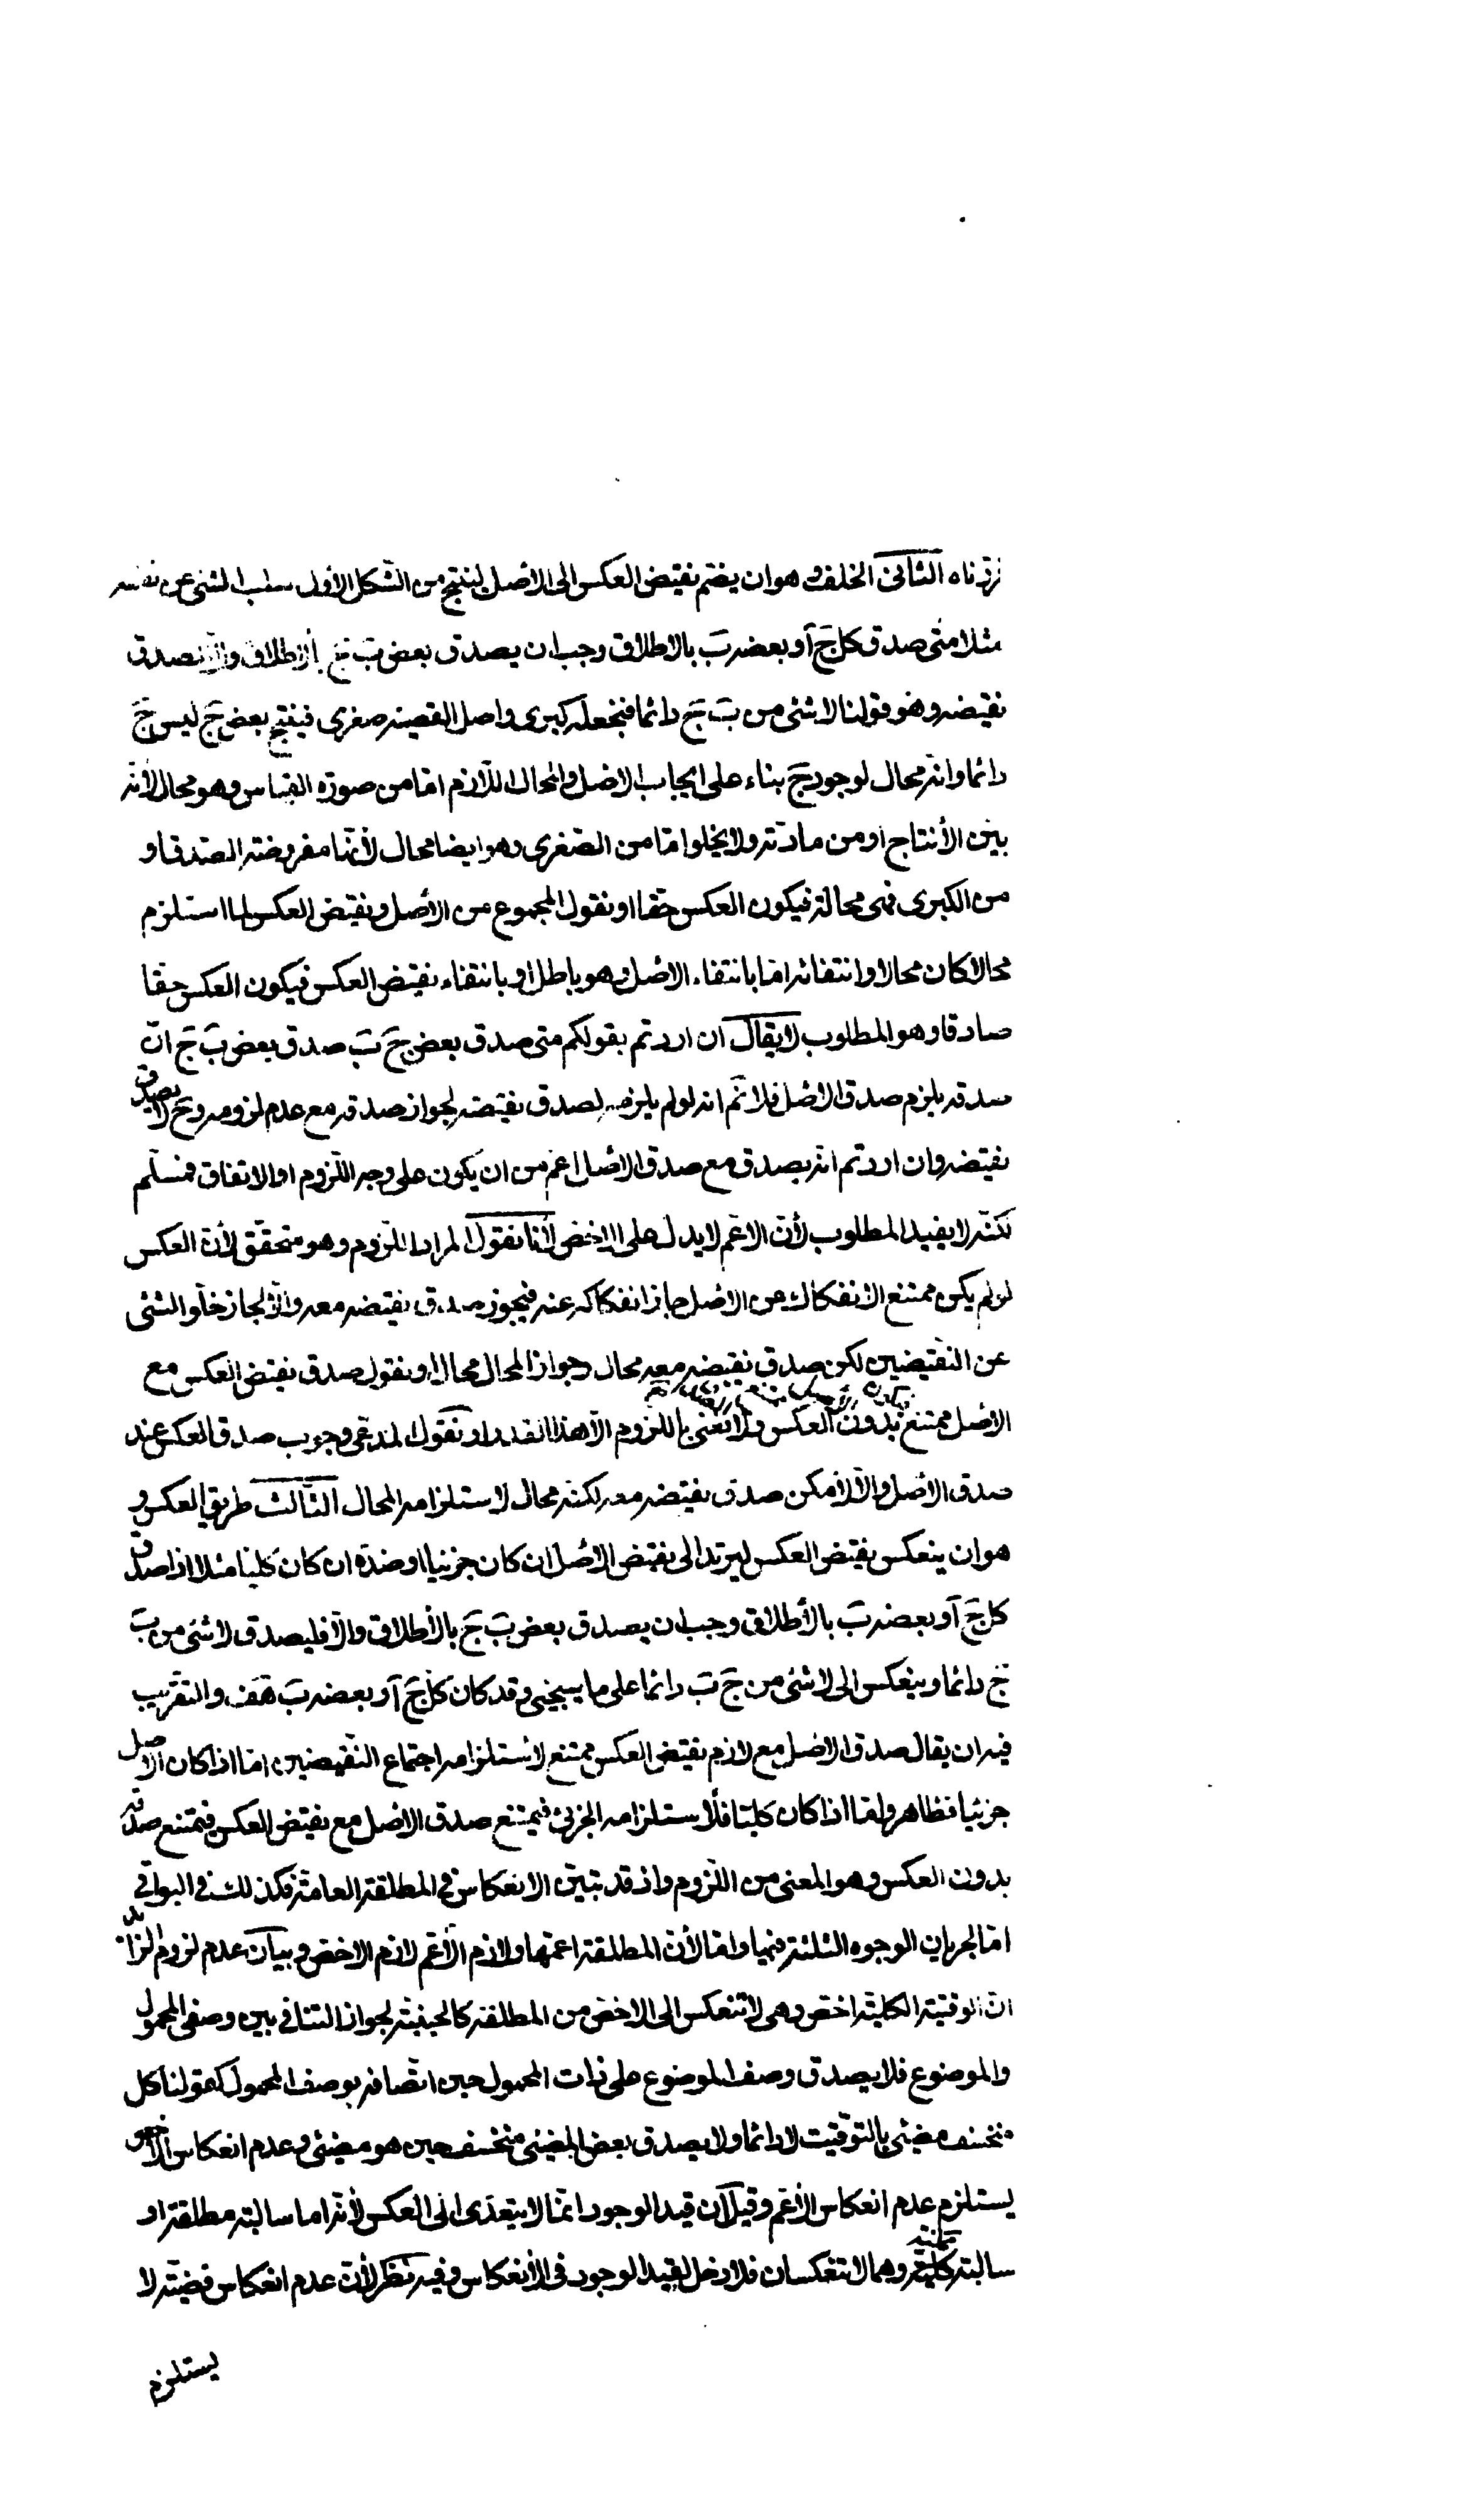 الثانى الخلف وهو ان يضم نقيض العكس الى الاصل لينتج من الشكل الاول سلب الشئ عن نفسه
مثلا متى صدق كل جَ آو بعضه بَ بالاطلاق وجب ان يصدق بعض بَ جَ بالاطلاق والّا لصدق
نقيضه وهو قولنا لا شئ من بَ جَ دائما فنجعله كبرى واصل القضيه صغرى فينتج بعض جَ ليس جَ
دائما وانه محال لوجود جَ بناء على ايجاب الاصل والمحال اللازم امّا من صورة القياس وهو محال لأنه
بيّن الأنتاج او من مادّته ولا يخلوا امّا من الصّغرى وهو ايضا محال لأنها مفروضة الصّدق او
من الكبرى فهى محالة فيكون العكس حقّا او نقول المجموع من الأصل ونقيض العكس لما استلزم
محالا كان محالا وانتفائه امّا بانتفاء الاصل وهو باطل او بانتفاء نقيض العكس فيكون العكس حقّا
صادقا وهو المطلوب لا يقال ان اردتم بقولكم متى صدق بعض جَ بَ صدق بعض بَ جَ انّ
صدقه يلزم صدق الاصل فلا نمّ انه لو لم يلزمه لصدق نقيضه لجواز صدقه مع عدم لزومه وحَ لا يصدق
نقيضه وان اردتم انه يصدق مع صدق الاصل اعم من ان يكون على وجه اللّزوم او الاتفاق فمسلّم
لكنّه لا يفيد المطلوب لأنّ الاعمّ لا يدل على الاخصّ لأنا نقول المراد اللّزوم وهو متحقّق لأنّ العكس
لو لم يكن ممتنع الانفكاك عن الاصل جاز انفكاكه عنه فيجوز صدق نقيضه معه والّا لجاز خلّو الشئ
عن النقيضين لكن صدق نقيضه معه محال وجواز المحال محال او نقول صدق نقيض العكس مع
الاصل ممتنع بدون العكس ولا نعنى باللزوم الّا هذا القدر او نقول المدّعى وجوب صدق العكس عند
صدق الاصل والّا لامكن صدق نقيضه معه لكنّه محال لاستلزامه المحال الثالث طريق العكس و
هو ان ينعكس نقيض العكس ليرتد الى نقيض الاصل ان كان جزئيا او ضدّه ان كان كليا مثلا اذا صدق
كل جَ آو بعضه بَ بالأطلاق وجب ان يصدق بعض بَ جَ بالأطلاق والّا فليصدق لا شئ من بَ
جَ دائما وينعكس الى لا شئ من جَ بَ دائما على ما سيجئ وقد كان كل جَ آو بعضه بَ هَف والتقريب
فيه ان يقال صدق الاصل مع لازم نقيض العكس ممتنع لاستلزامه اجتماع النّقيضين امّا اذا كان الاصل
جزئيا فظاهر وامّا اذا كان كليّا فلاستلزامه الجزئى فيمتنع صدق الاصل مع نقيض العكس فيمتنع صدقه
بدون العكس وهو المعنى من اللّزوم واذ قد تبيّن الانعكاس فى المطلقة العامّة فكذلك فى البواقى
امّا لجريان الوجوه الثلثة فيها وامّا لأنّ المطلقة اعمّها ولازم الأعّم لازم الاخصّ وبيان عدم لزوم الزائد
انّ الوقتية الكلية اخصّ وهى لا تنعكس الى الاخصّ من المطلقة كالحينية لجواز التنافى بين وصفى المحمول
والموضوع فلا يصدق وصف الموضوع على ذات المحمول حين اتّصافه بوصف المحمول كقولنا كل
منخسف مضيئ بالتوقيت لا دائما ولا يصدق بعض المضيئى منخسف حين هو مضيئى وعدم انعكاس الاخص
يستلزم عدم انعكاس الأعّم وقيل ان قيد الوجود انمّا لا يتعدّى الى العكس لأنه اما سالبة مطلقة او
سالبة ممكنة وهما لا تنعكسان فلا دخل لقيد الوجود فى الأنعكاس وفيه نظر لأنّ عدم انعكاس قضيّة لا
يستلزم